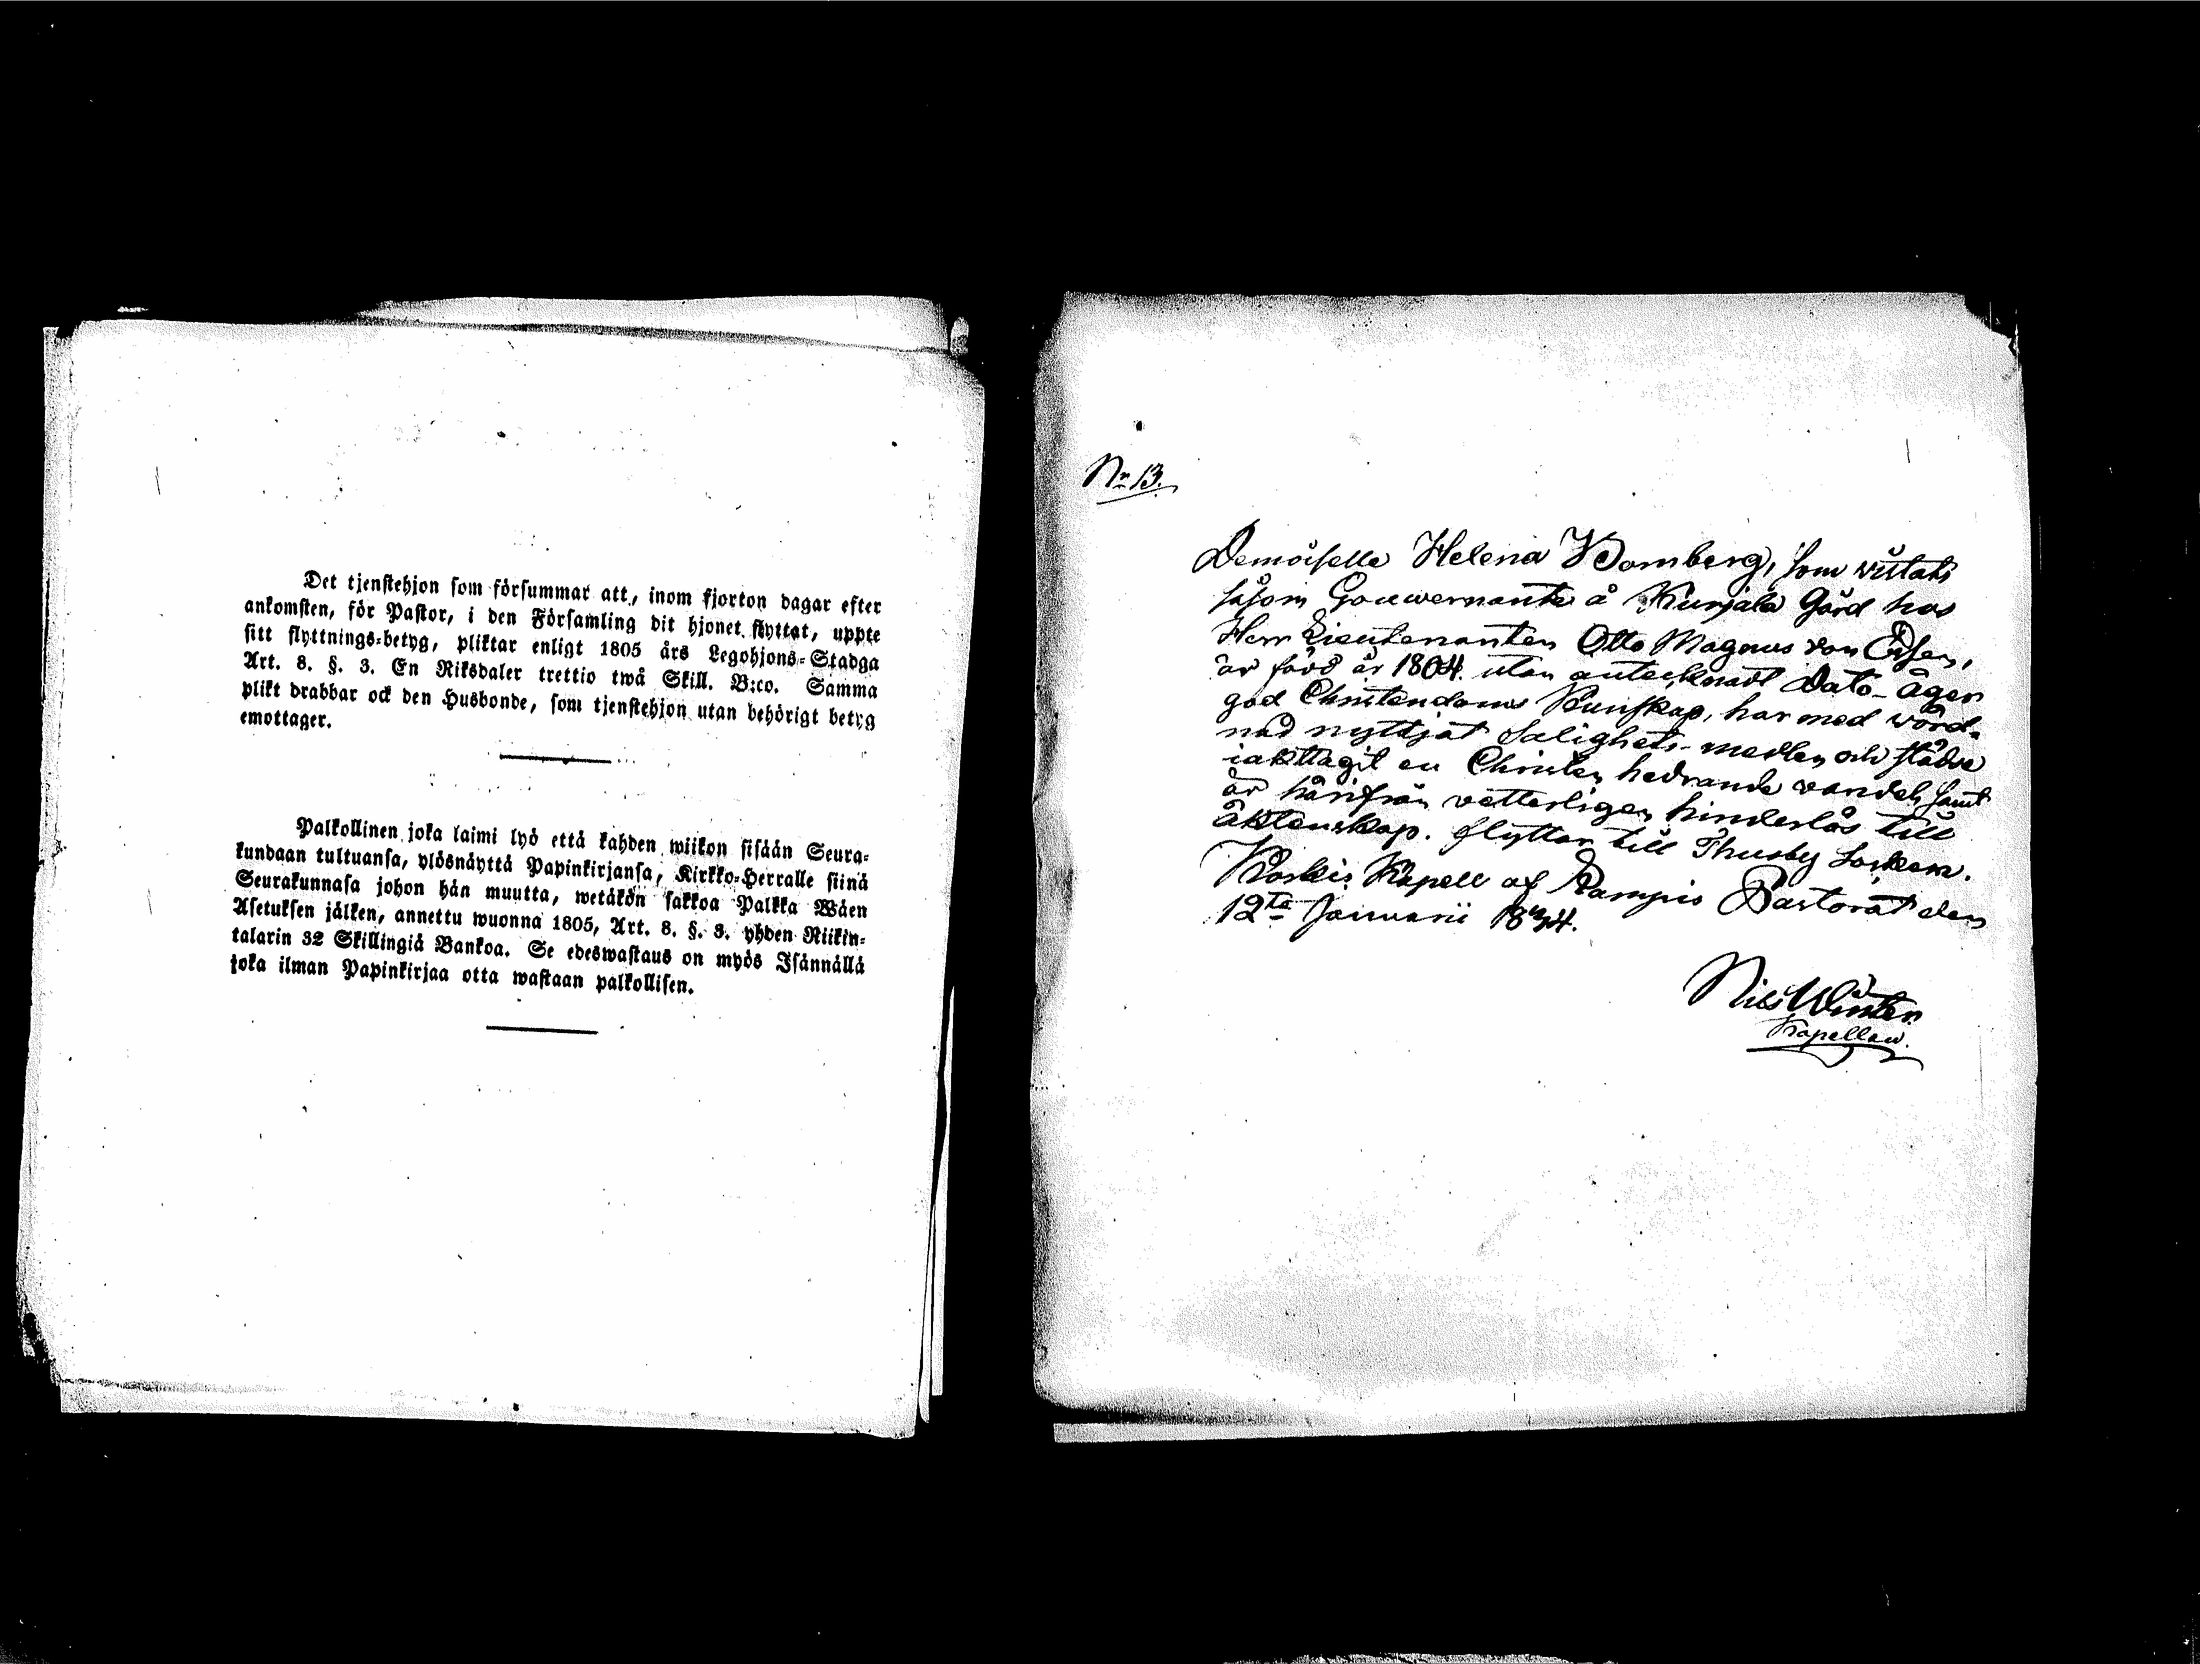 Det tjenstehjon som försummar att, inom fjorton dagar efter
ankomsten, för Pastor, i den Församling dit hjonet flyttat, uppte
sitt flyttnings-betyg, pliktar enligt 1805 års Legohjons-Stadga
Art. 8. §. 3. En Riksdaler trettio twå Skill. B:co. Samma
plikt drabbar ock den Husbonde, som tjenstehjon utan behörigt betyg
emottager.
Palkollinen joka laimi lyö että kahden wiikon sisään Seura-
kundaan tultuansa, ylösnäyttä Papinkirjansa, Kirkko-Herralle siinä
Seurakunnasa johon hän muutta, wetäkön sakkoa Palkka Wäen
Asetuksen jälken, annettu wuonna 1805, Art. 8. §. 3. yhden Riikin-
talarin 32 Skillingiä Bankoa. Se edeswastaus on myös Isännällä
joka ilman Papinkirjaa otta wastaan palkollisen.
No 13.
Demoiselle Helena Bomberg, som wistats
såsom Gouwernante å Kurjala Gård hos
Herr Lieutenanten Otto Magnus von Essen,
är född år 1804. utan antecknadt Dato - äger
god Christendoms Kunskap, har med wörd-
nad nyttjat Salighets-medlen och städse
iakttagit en Christen hedrande vandel, samt
är härifrån vetterligen hinderlös till
äktenskap. flyttar till Thusby Socken.
Koskis Kapell af Pampis Pastorat den
12te Januarii 1834.
Nils Winter
Kapellan.